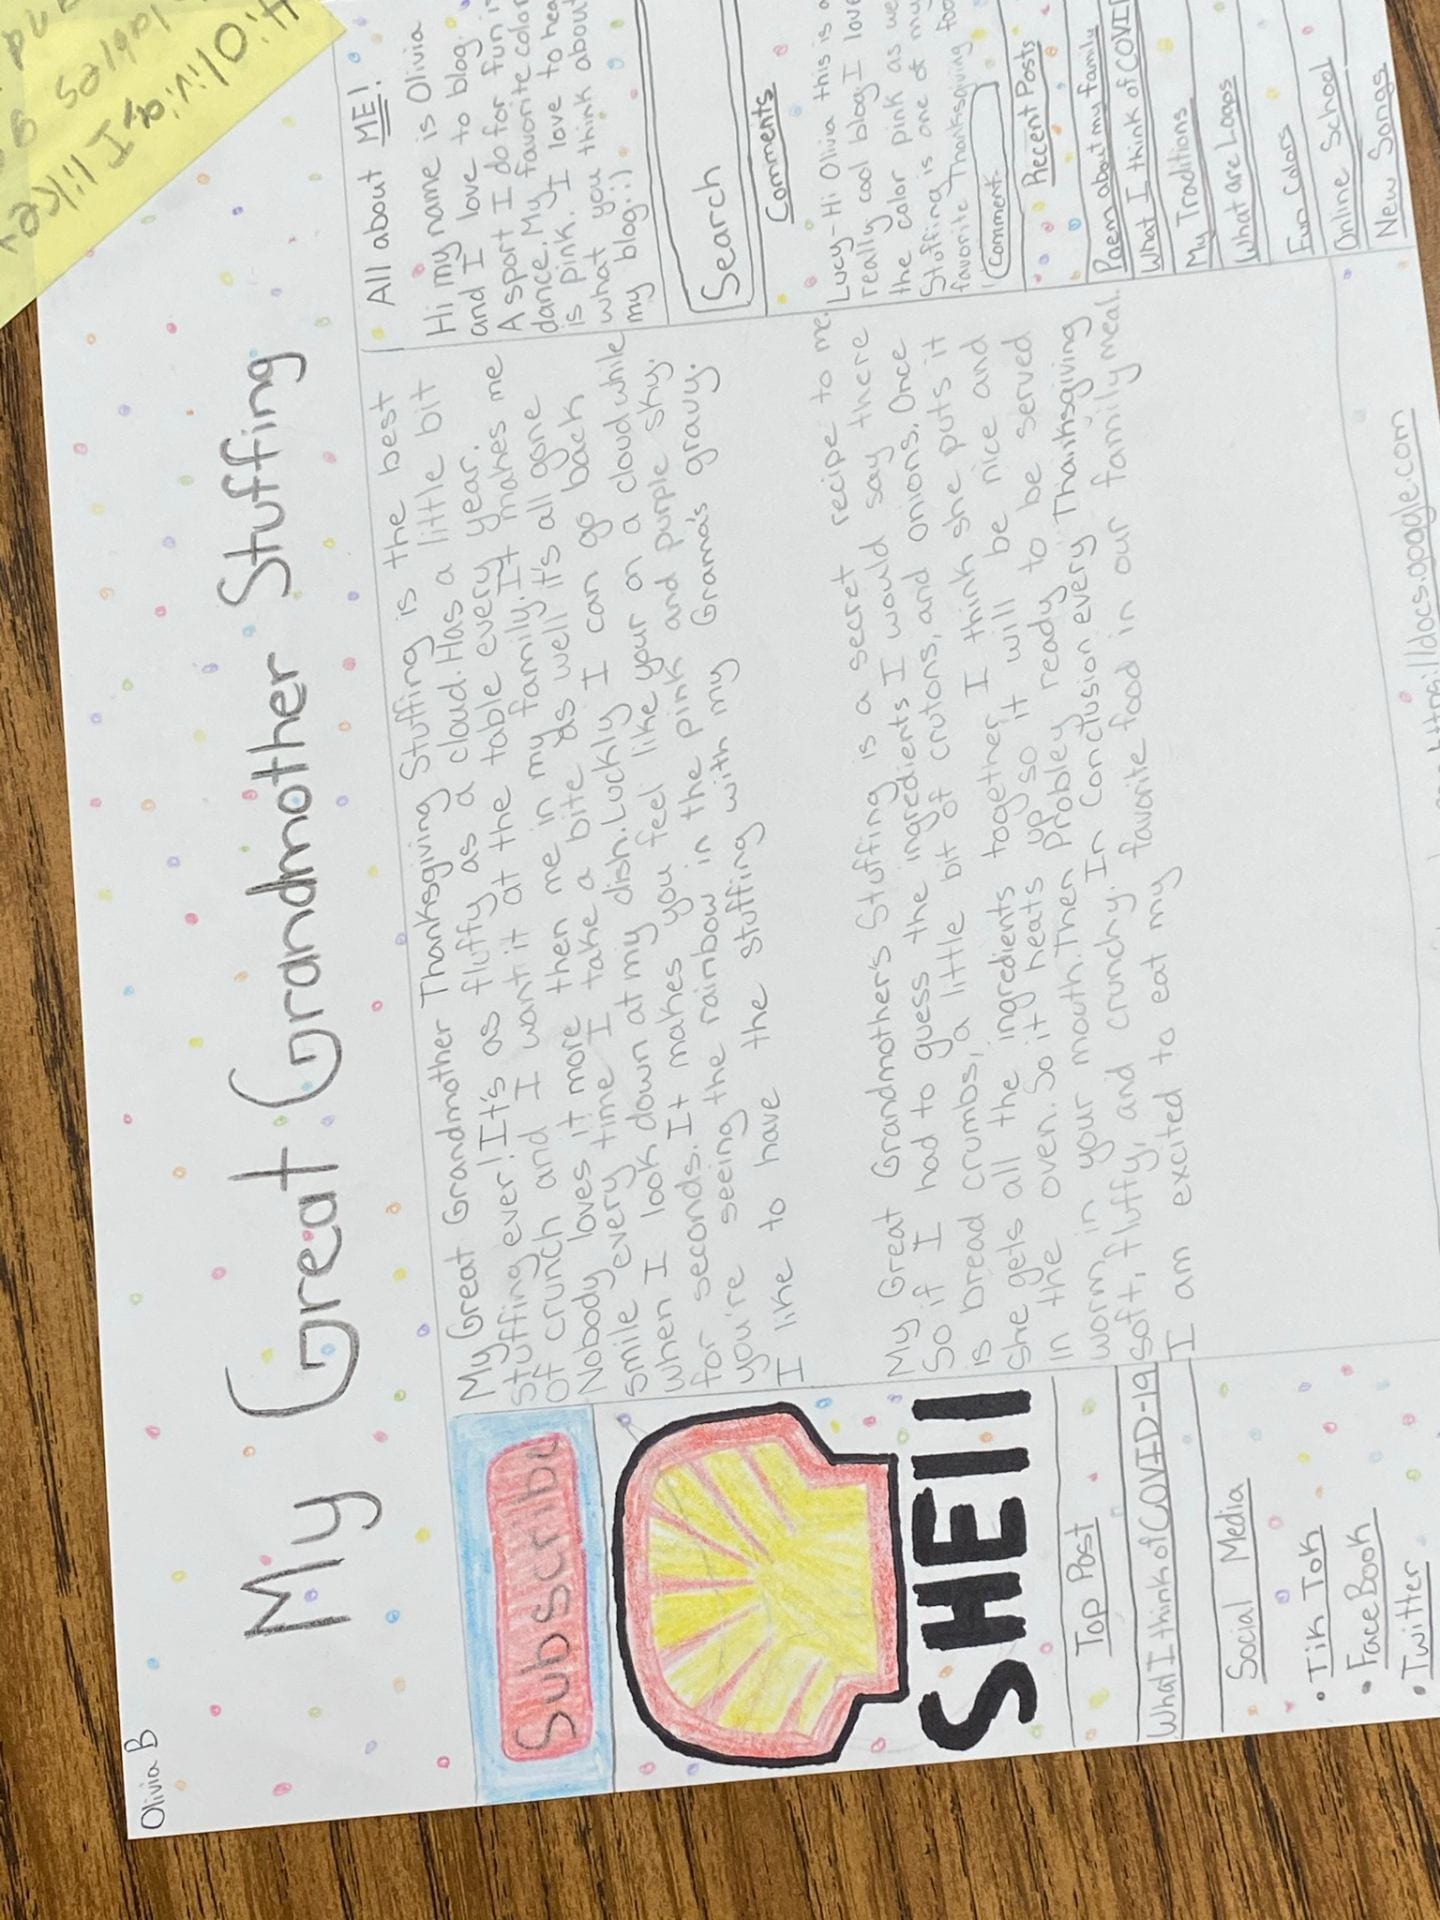 Olivia B
My Great Grandmother Stuffing
Hi Olivia, I
liked
Subscribe
SHEll
Top Post
What I think of COVID-19
Social Media
• Tik Tok
• FaceBook
• Twitter
My Great Grandmother Thanksgiving Stuffing is the best
stuffing ever! It's as fluffy as a cloud. Has a little bit
Of crunch and I want it at the table every year.
Nobody loves it more then me in my family. It makes me
smile every time I take a bite as well it's all gone
when I look down at my dish. Luckly I can go back
for seconds. It makes you feel like your on a cloud while
you're seeing the rainbow in the pink and purple sky.
I like to have the stuffing with my Grama's gravy.
My Great Grandmother's Stuffing is a secret recipe to me.
So if I had to guess the ingredients I would say there
is bread crumbs, a little bit of crutons, and onions. Once
She gets all the ingredients together I think she puts it
in the oven. So it heats up so it will be nice and
worm in your mouth. Then Probley ready to be served
soft, fluffy, and crunchy. In Conclusion every Thanksgiving
I am excited to eat my favorite food in our family meal.
https://docs.google.com
All about ME!
Hi my name is Olivia
and I love to blog.
A sport I do for fun is
dance. My favorite color
is pink. I love to hea
what you think about
my blog:)
Search
Comments
Lucy-Hi Olivia this is a
really cool blog I love
the color pink as we
Stuffing is one of my
favorite Thanksgiving foo
Comment
Recent Posts
Poem about my family
What I think of COVID
My Traditions
What are Loops
Fun Colors
Online School
New Songs